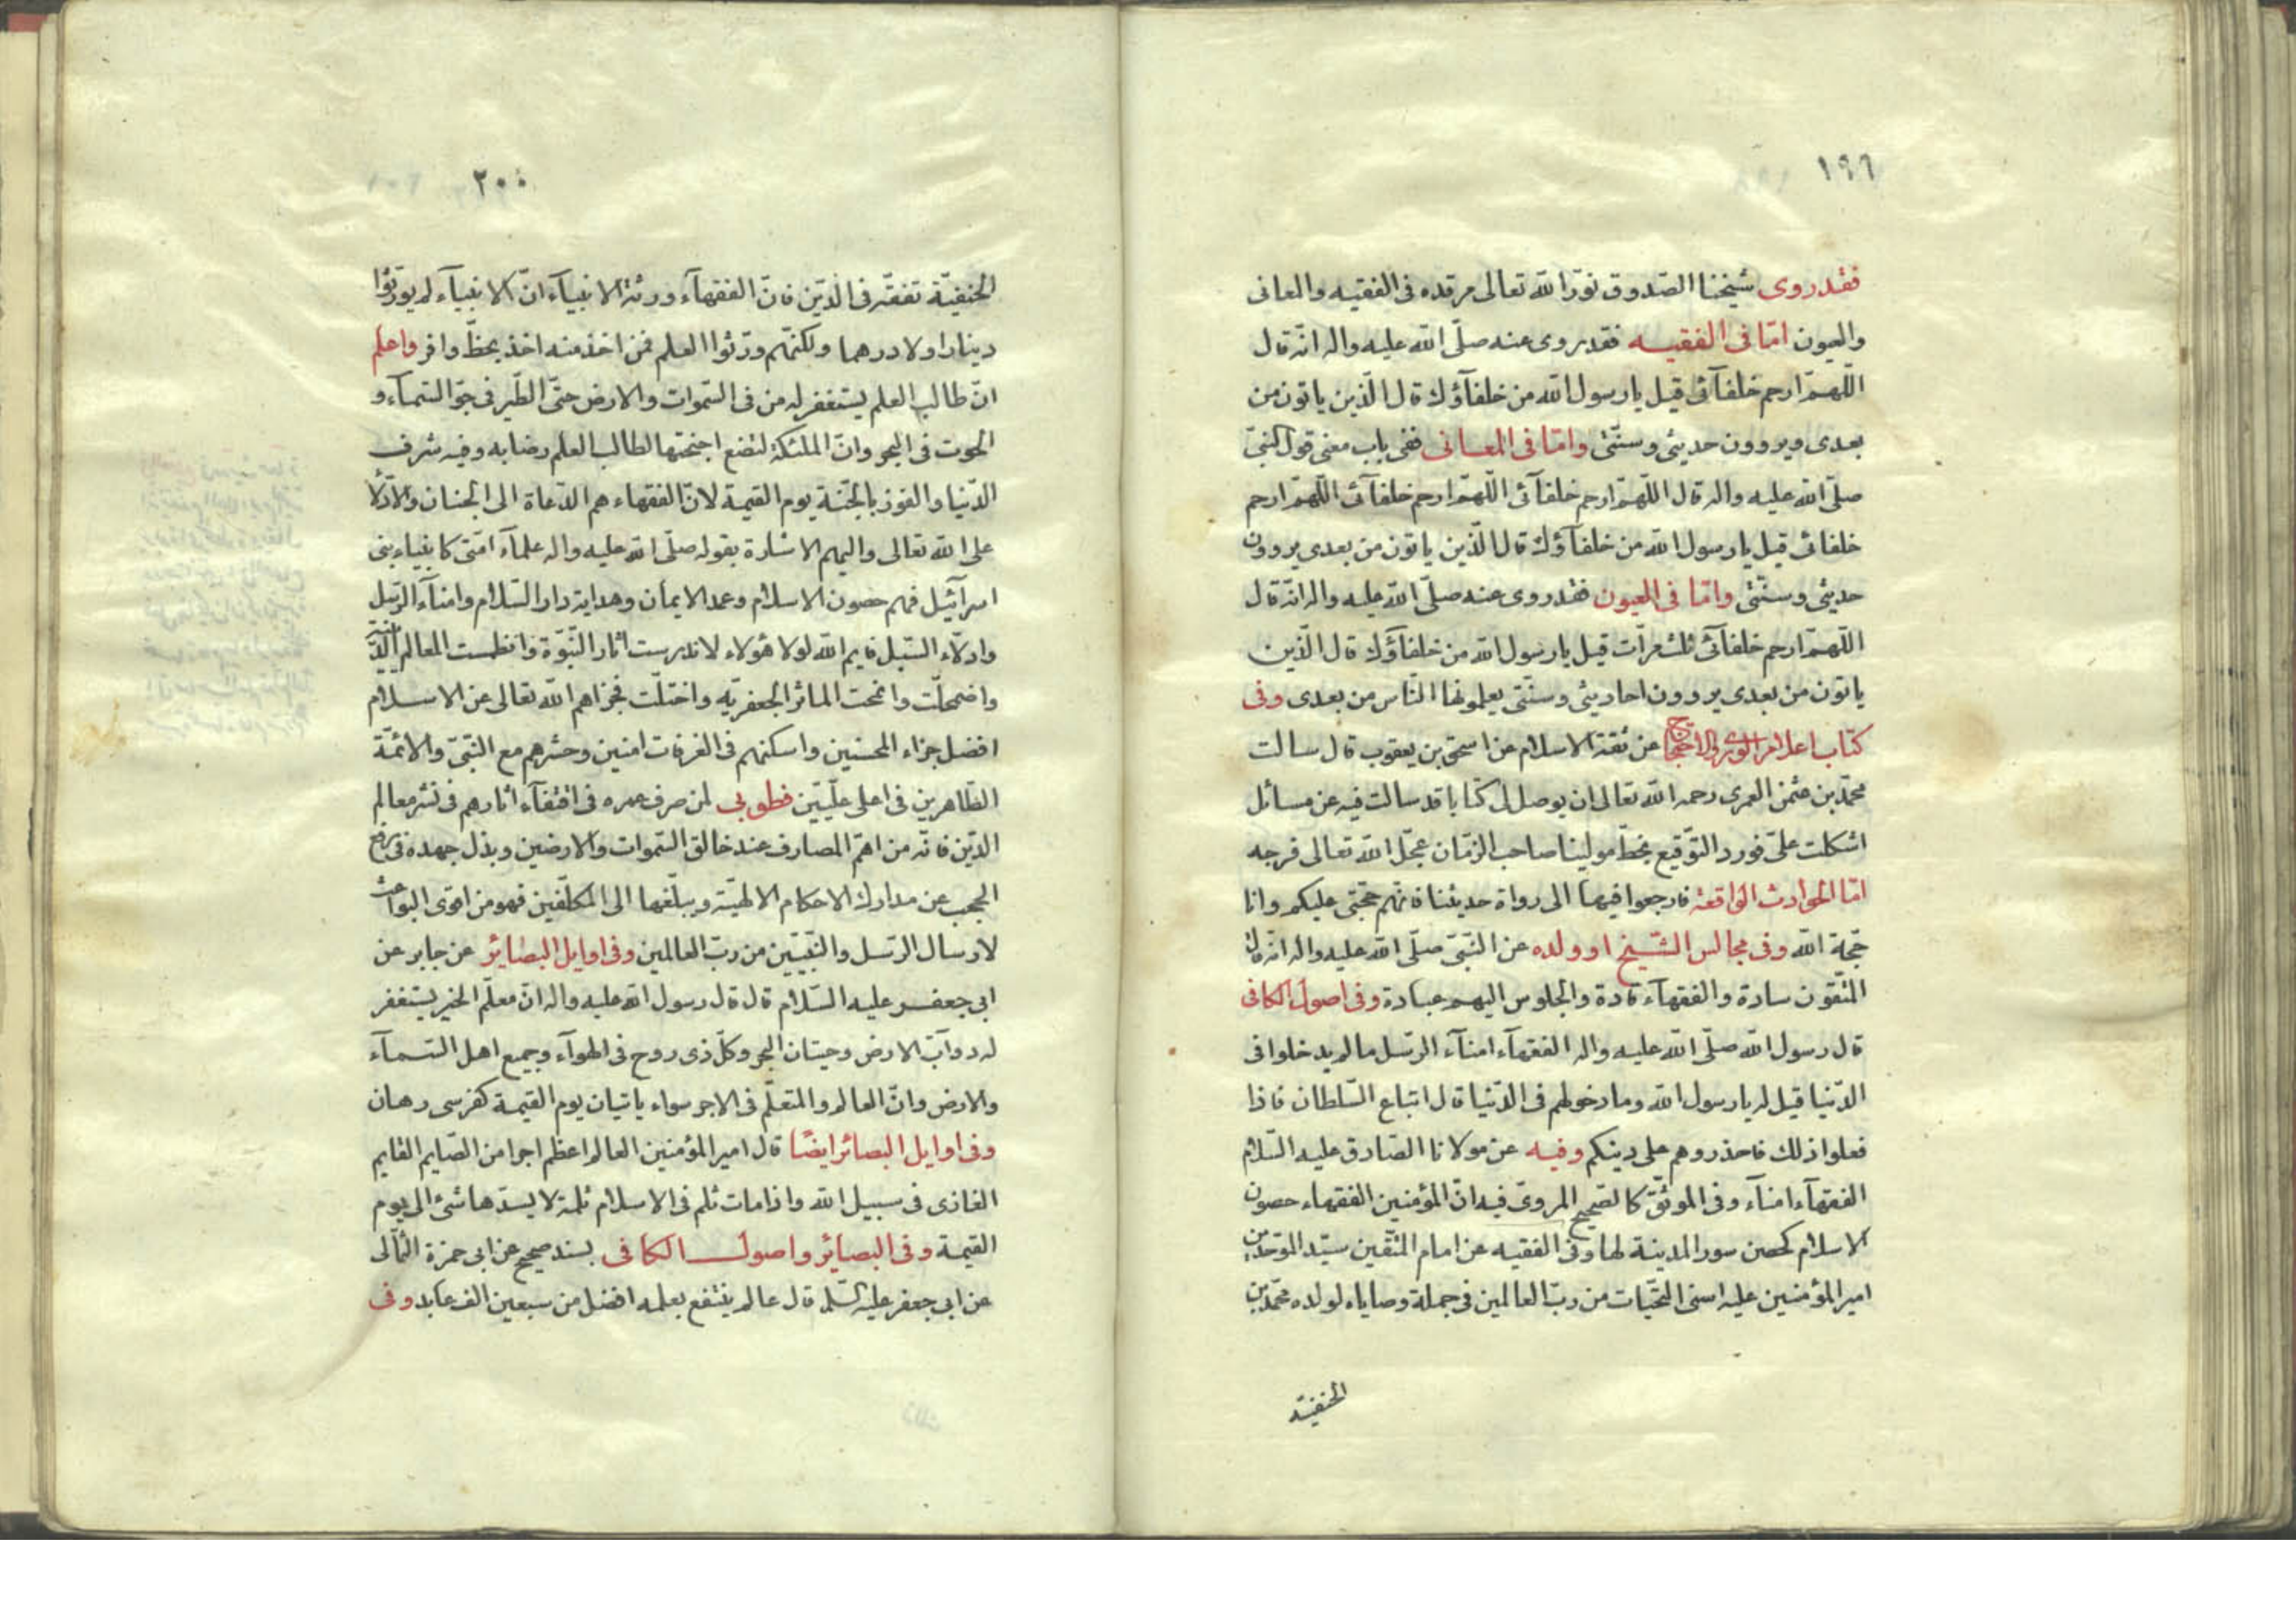 ١٩٦
فقد روى شيخنا الصدوق نوّر الله تعالى مرقده فى الفقيه والمعانى
والعيون امّا فى الفقيه فقد روى عنه صلّى الله عليه واله انّه قال
اللّهمّ ارحم خلفآئى قيل يا رسول الله من خلفآؤك قال الّذين ياتون من
بعدى ويروون حديثى وسنّتى وامّا فى المعانى ففى باب معنى قول النبىّ
صلّى الله عليه واله قال اللّهمّ ارحم خلفآئى اللّهمّ ارحم خلفآئى اللّهمّ ارحم
خلفائى قيل يا رسول الله من خلفآؤك قال الّذين ياتون من بعدى يروون
حديثى وسنّتى وامّا فى العيون فقد روى عنه صلّى الله عليه واله انّه قال
اللّهمّ ارحم خلفآئى ثلث مرّات قيل يا رسول الله من خلفآؤك قال الّذين
ياتون من بعدى يروون احاديثى وسنّتى يعلمونها النّاس من بعدى وفى
كتاب اعلام الورى والاحتجاج عن ثقة الاسلام عن اسحق بن يعقوب قال سالت
محمّد بن عثمن العمرى رحمه الله تعالى ان يوصل لى كتابا قد سالت فيه عن مسائل
اشكلت علىّ فورد التّوقيع بخطّ مولينا صاحب الزّمان عجّل الله تعالى فرجه
امّا الحوادث الواقعة فارجعوا فيها الى رواة حديثنا فانّهم حجّتى عليكم وانا
حجّة الله وفى مجالس الشّيخ او ولده عن النّبىّ صلّى الله عليه واله انّه قال
المتّقون سادة والفقهآء قادة والجلوس اليهم عبادة وفى اصول الكافى
قال رسول الله صلّى الله عليه واله الفقهآء امنآء الرّسل ما لم يدخلوا فى
الدّنيا قيل له يا رسول الله وما دخولهم فى الدّنيا قال اتباع السّلطان فاذا
فعلوا ذلك فاحذروهم على دينكم وفيه عن مولانا الصّادق عليه السّلام
الفقهآء امنآء وفى الموثّق كالصّحيح المروىّ فيه انّ المؤمنين الفقهاء حصون
الاسلام كحصن سور المدينة لها وفى الفقيه عن امام المتّقين سيّد الموحّدين
امير المؤمنين عليه اسنى التّحيّات من ربّ العالمين فى جملة وصاياه لولده محمّد بن
الحنفيّة
٢٠٠
الحنفيّة تفقّه فى الدّين فانّ الفقهآء ورثة الانبيآء انّ الانبيآء لم يورّثوا
دينارا ولا درهما ولكنّهم ورّثوا العلم فمن اخذ منه اخذ بحظّ وافر واعلم
انّ طالب العلم يستغفر له من فى السّموات والارض حتّى الطّير فى جوّ السّمآء و
الحوت فى البحر وانّ الملئكة لتضع اجنحتها لطالب العلم رضا به وفيه شرف
الدّنيا والفوز بالجنّة يوم القيمة لانّ الفقهاء هم الدّعاة الى الجنان والادّلآء
على الله تعالى واليهم الاشارة بقوله صلّى الله عليه واله علمآء امّتى كانبياء بنى
اسرآئيل فهم حصون الاسلام وعمد الايمان وهداية دار السّلام وامنآء الرّسل
وادلّاء السّبل فايم الله لولا هؤلاء لاندرست اثار النّبوّة وانطمست المعالم الدّينيّة
واضمحلّت وانمحت الماثر الجعفريّه واختلّت فجزاهم الله تعالى عن الاسلام
افضل جزاء المحسنين واسكنهم فى الغرفات امنين وحشرهم مع النّبىّ والائمّة
الطّاهرين فى اعلى علّيّين فطوبى لمن صرف عمره فى اقتفآء اثارهم فى نشر معالم
الدّين فانّه من اهمّ المصارف عند خالق السّموات والارضين وبذل جهده فى رفع
الحجب عن مدارك الاحكام الالهيّة ويبلّغها الى المكلّفين فهو من اقوى البواعث
لارسال الرّسل والنّبيّين من ربّ العالمين وفى اوايل البصائر عن جابر عن
ابى جعفر عليه السّلام قال قال رسول الله عليه واله انّ معلّم الخير يستغفر
له دوآبّ الارض وحيتان البحر وكلّ ذى روح فى الهوآء وجميع اهل السّمآء
والارض وانّ العالم والمتعلّم فى الاجر سواء ياتيان يوم القيمة كفرسى رهان
وفى اوايل البصائر ايضًا قال امير المؤمنين العالم اعظم اجرا من الصّايم القايم
الغازى فى سبيل الله واذا مات ثلم فى الاسلام ثلمة لا يسدّها شئ الى يوم
القيمة وفى البصائر واصول الكافى بسند صحيح عن ابى حمزة الثّمالى
عن ابى جعفر عليه السّلم قال عالم ينتفع بعلمه افضل من سبعين الف عابد وفى